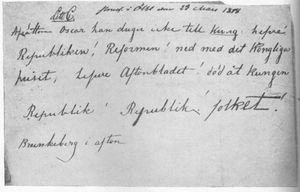 den 23 Mars 1848
Oscar han duger icke till Kung. lefve
Republiken! Reformen! ned med det Kongliga
huset, lefve Aftonbladet! död åt Kungen
Republik! Republik! folket!
Brunkeberg i afton